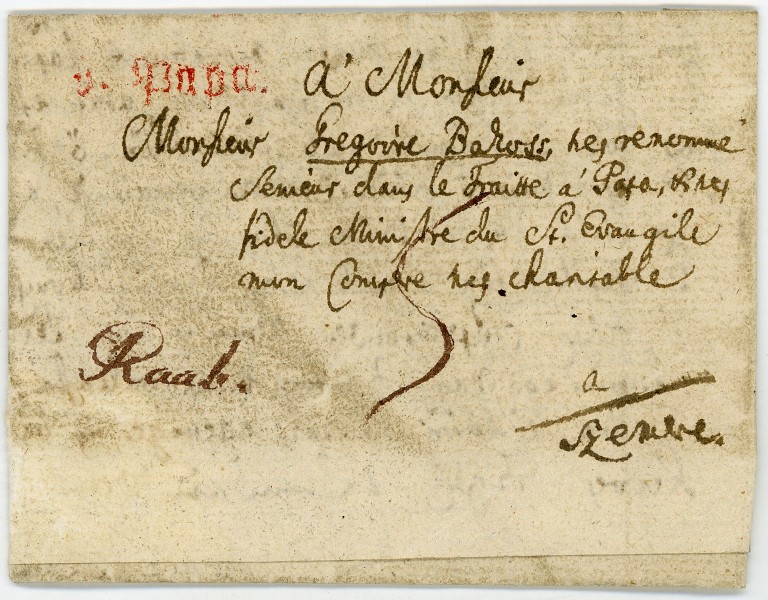 v. Papa.
à Monsieur
Monsieur Gregoire Bakoss, tres renommé
Senieur dans le Traitte á Papa, & tres
fidele Ministre du St. Evangile
mon Compere tres charitable
5
Raab.
a
Szemere.